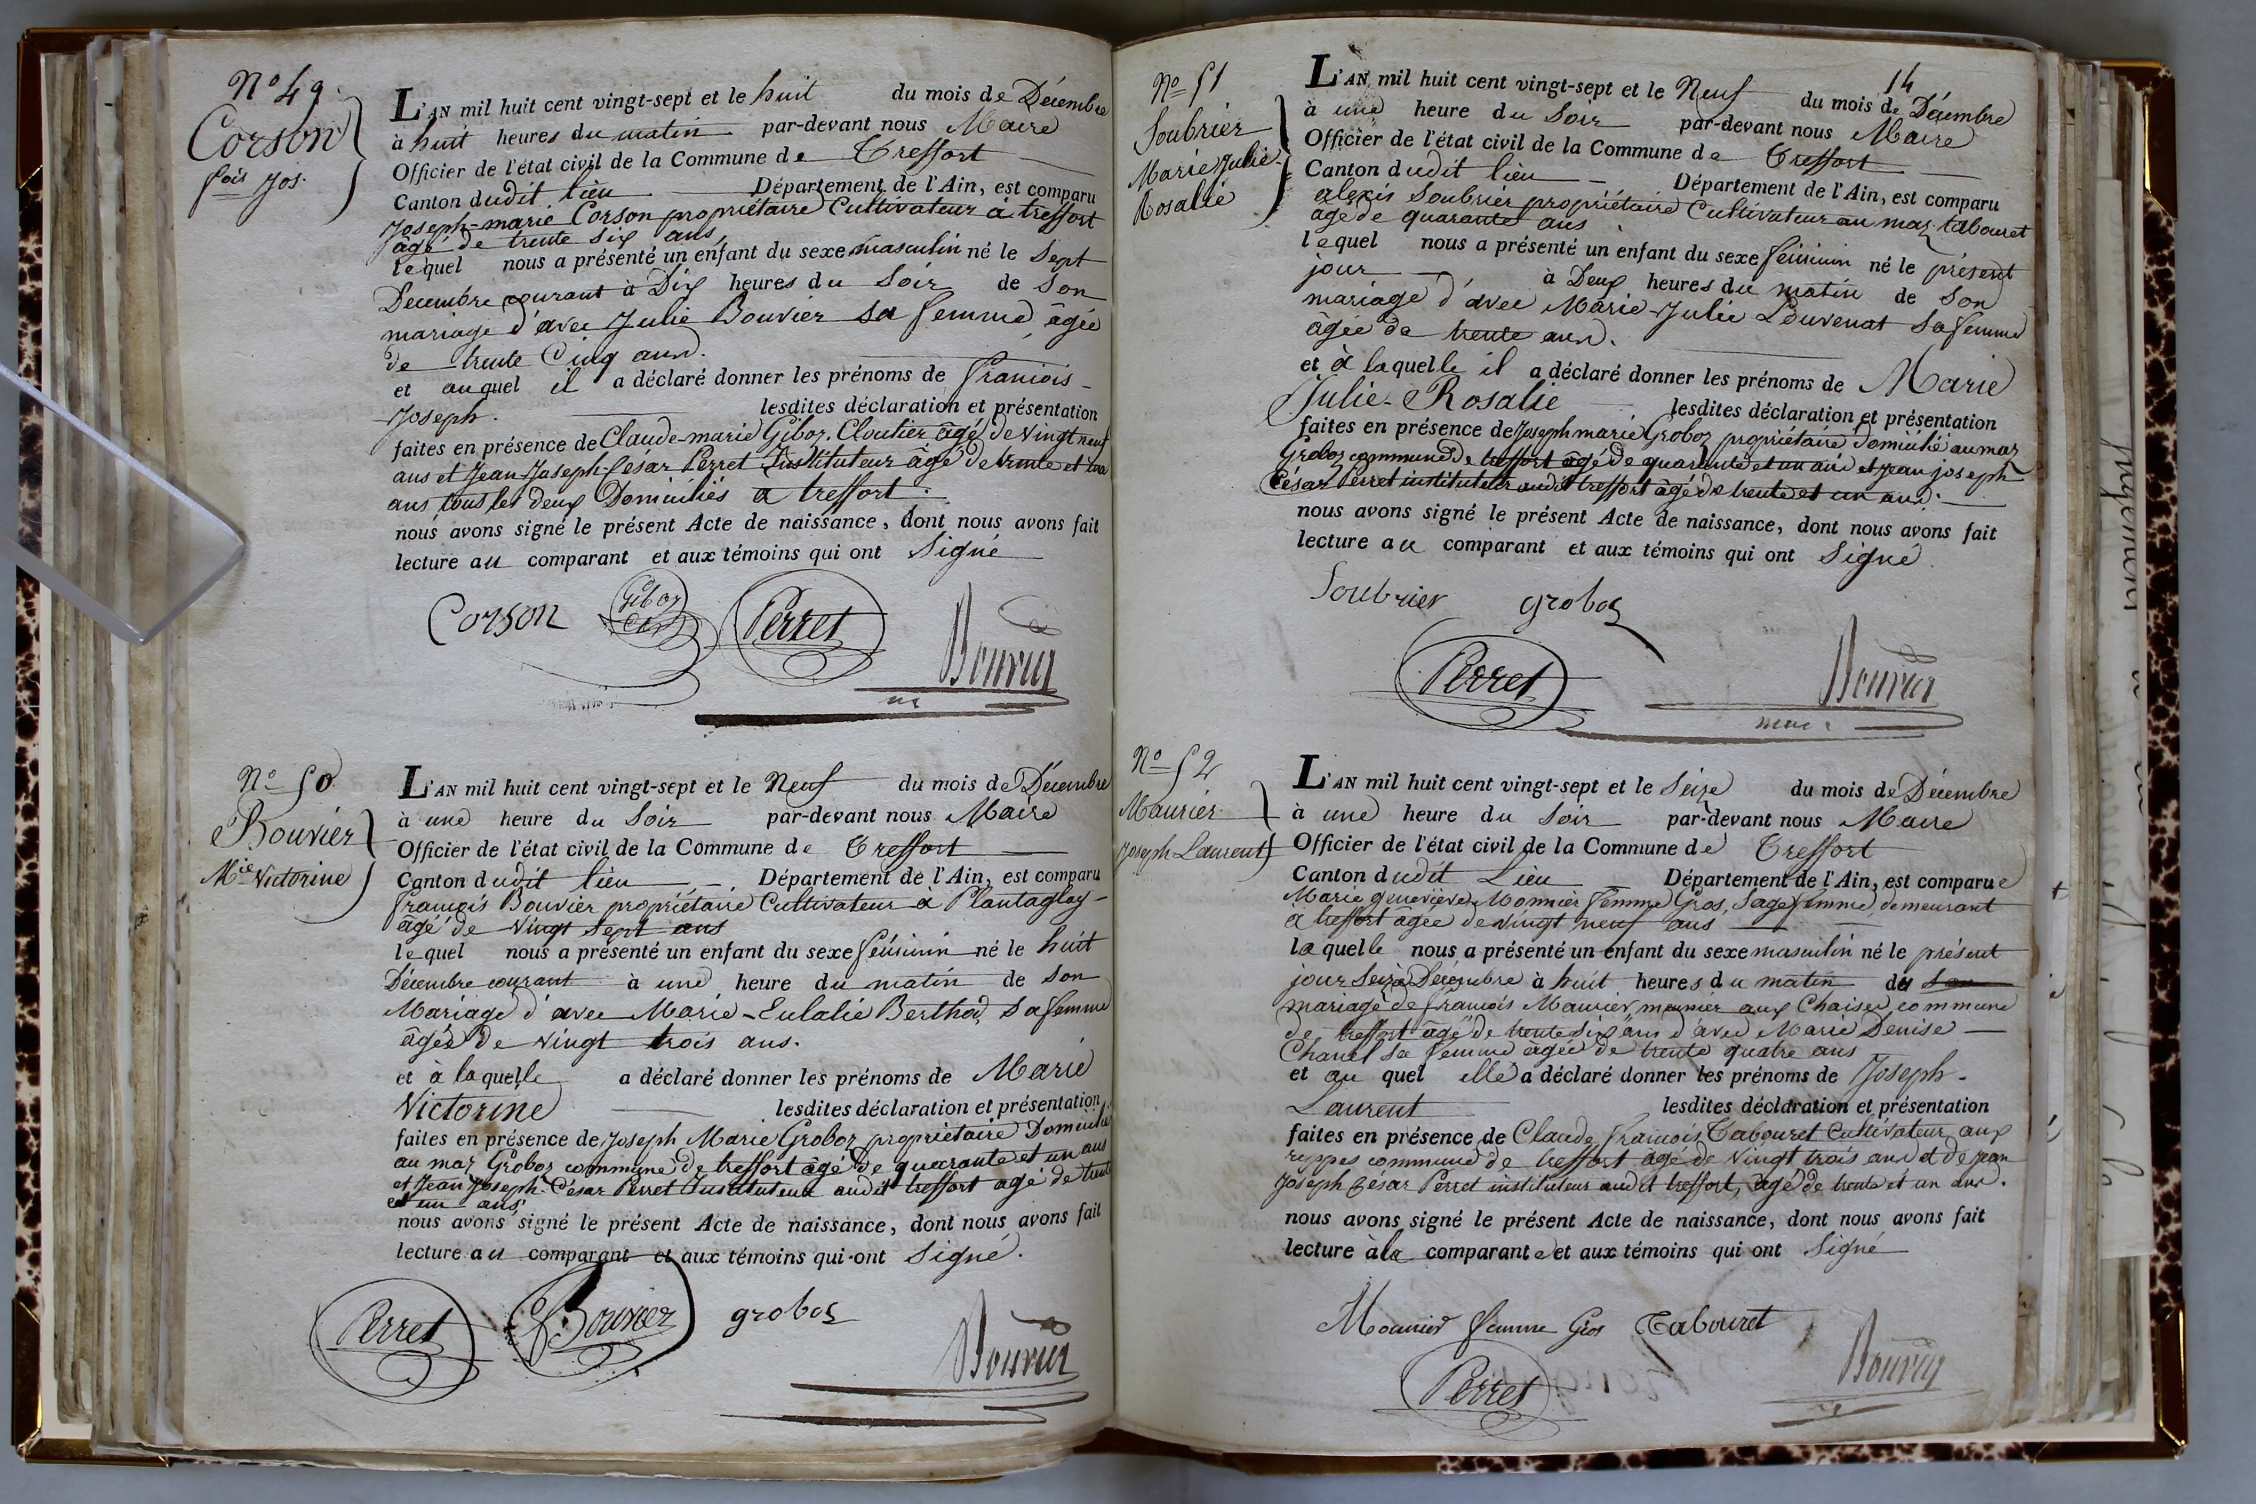 No 49.
Corson
fois Jos.
L'AN mil huit cent vingt-sept et le huit du mois de Décembre
à huit heures du matin par-devant nous Maire
Officier de l'état civil de la Commune de Treffort
Canton dudit lieu Département de l'Ain, est comparu
Joseph-marie Corson propriétaire Cultivateur à treffort
âgé de trente six ans,
lequel nous a présenté un enfant du sexe masculin né le sept
Decembre courant à Dix heures du Soir de son
mariage d'avec Julie Bouvier sa femme âgée
de trente Cinq ans.
et auquel il a déclaré donner les prénoms de françois-
Joseph. lesdites déclaration et présentation
faites en présence de Claude-marie Giboz, Cloutier âgé de vingt neuf
ans et Jean-Joseph-César Perret Instituteur âgé de trente et un
ans tous les deux Domiciliés à treffort.
nous avons signé le présent Acte de naissance, dont nous avons fait
lecture au comparant et aux témoins qui ont Signé
Corson Giboz Perret Bouvier
No 50
Bouvier
Mie Victorine
L'AN mil huit cent vingt-sept et le Neuf du mois de Décembre
à une heure du Soir par-devant nous Maire
Officier de l'état civil de la Commune de Treffort
Canton dudit lieu Département de l'Ain, est comparu
françois Bouvier propriétaire Cultivateur à Plantaglay-
âgé de Vingt Sept ans
lequel nous a présenté un enfant du sexe féminin né le huit
Décembre courant à une heure du matin de son
Mariage d'avec Marie-Eulalie Berthod, sa femme
âgée de vingt trois ans.
et à laquelle a déclaré donner les prénoms de Marie
Victorine lesdites déclaration et présentation
faites en présence de Joseph Marie Groboz propriétaire Domicilié
au maz Groboz commune de treffort âgé de quarante et un ans
et Jean Joseph-César Perret Instituteur audit treffort agé de trente
et un ans
nous avons signé le présent Acte de naissance, dont nous avons fait
lecture au comparant et aux témoins qui ont Signé.
Perret f Bouvier groboz
Bouvier
14
No 51
Soubrier
Marie Julie-
Rosalie
L'AN mil huit cent vingt-sept et le Neuf du mois de Décembre
à une heure du Soir par-devant nous Maire
Officier de l'état civil de la Commune de Treffort
Canton dudit lieu Département de l'Ain, est comparu
alexis Soubrier propriétaire Cultivateur au maz tabouret
age de quarante ans
lequel nous a présenté un enfant du sexe féminin né le présent
jour à Deux heures du matin de son
mariage d'avec Marie-Julie Louvenat sa femme
âgée de trente ans.
et à laquelle il a déclaré donner les prénoms de Marie
Julie-Rosalie lesdites déclaration et présentation
faites en présence de Joseph marie Groboz propriétaire domicilié au maz
Groboz commune de treffort âgé de quarante et un ans et jean joseph
César Perret instituteur audit treffort âgé de trente et un ans.
nous avons signé le présent Acte de naissance, dont nous avons fait
lecture au comparant et aux témoins qui ont Signé
Soubrier groboz
Perret Bouvier
maire
No 52
Maurier
Joseph-Laurent
L'AN mil huit cent vingt-sept et le Seize du mois de Décembre
à une heure du Soir par-devant nous Maire
Officier de l'état civil de la Commune de Treffort
Canton dudit Lieu Département de l'Ain, est comparue
Marie geneviève Monnier femme Gros, Sage femme, demeurant
a treffort agée de vingt neuf ans
laquelle nous a présenté un enfant du sexe masculin né le présent
jour Seize Décembre à huit heures du matin du son
mariage de françois Maurier, meunier aux Chaises, commune
de treffort âgé de trente six ans d'avec Marie Denise
Chanel sa femme âgée de trente quatre ans
et au quel elle a déclaré donner les prénoms de Joseph-
Laurent lesdites déclaration et présentation
faites en présence de Claude François Tabouret Cultivateur aux
ruppes commune de treffort âgé de vingt trois ans et de jean
Joseph César Perret instituteur audit treffort, âgé de trente et un ans.
nous avons signé le présent Acte de naissance, dont nous avons fait
lecture à la comparante et aux témoins qui ont Signé
Monnier femme Gros Tabouret
Perret Bouvier